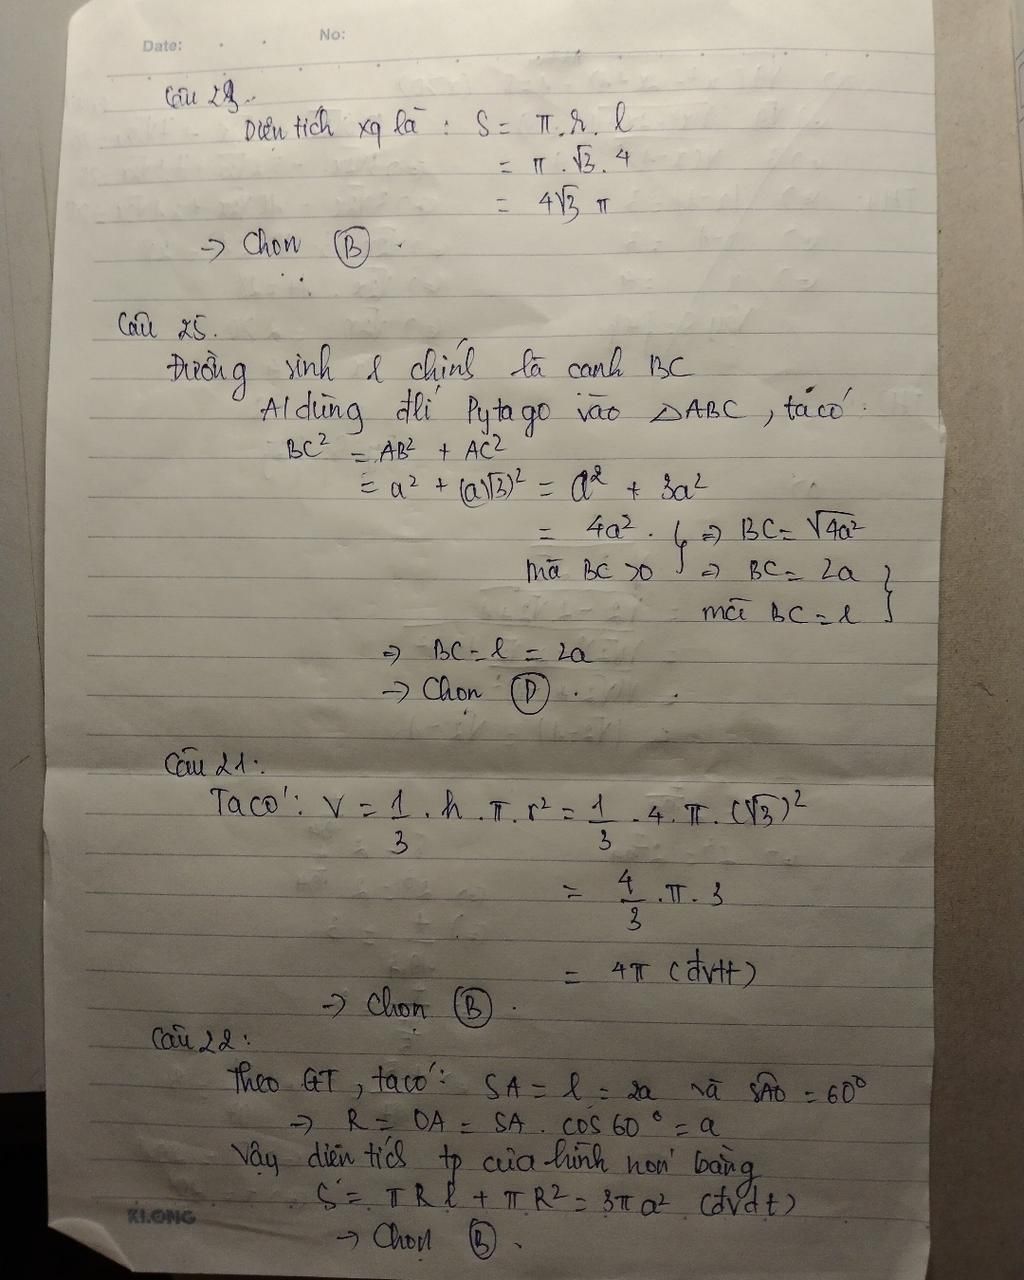 Date: . . No:
Câu 23.
Diện tích xq là : S = π.r.l
= π.√3.4
= 4√3 π
→ Chọn (B).
Câu 25.
Đường sinh l chính là cạnh BC
Áp dụng đlí Pytago vào △ABC, ta có:
BC² = AB² + AC²
= a² + (a√3)² = a² + 3a²
= 4a². } ⇒ BC = √4a²
mà BC >0 } ⇒ BC = 2a }
mà BC = l }
⇒ BC = l = 2a
→ Chọn (D).
Câu 21:
Ta có: V = 1/3 . h . π . r² = 1/3 . 4 . π . (√3)²
= 4/3 . π . 3
= 4π (đvtt)
→ Chọn (B).
Câu 22:
Theo GT, ta có: SA = l = 2a và SAO = 60°
→ R = OA = SA . cos 60° = a
Vậy diện tích tp của hình nón bằng
S = πRl + πR² = 3πa² (đvdt)
KLONG
→ Chọn (B).